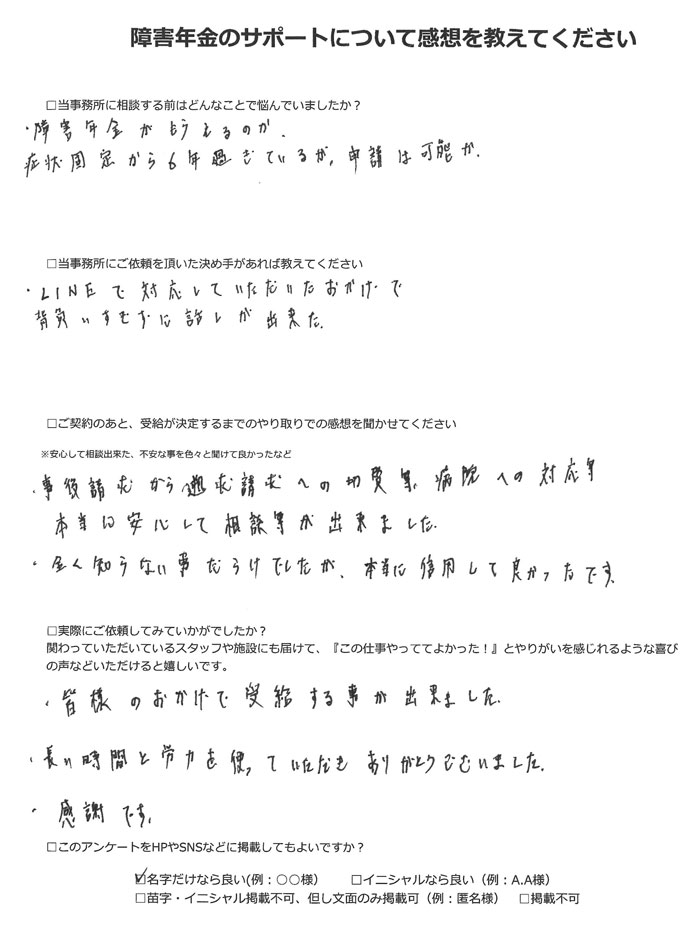 障害年金のサポートについて感想を教えてください
□当事務所に相談する前はどんなことで悩んでいましたか？
・障害年金がもらえるのか.
症状固定から6年過ぎているが,申請は可能か.
□当事務所にご依頼を頂いた決め手があれば教えてください
・LINEで対応していただいたおかげで
背負いすぎずに話しが出来た.
□ご契約のあと、受給が決定するまでのやり取りでの感想を聞かせてください
※安心して相談出来た、不安な事を色々と聞けて良かったなど
・事後請求から遡求請求への切変等、病院への対応等
本当に安心して相談等が出来ました.
・全く知らない事だらけでしたが、本当に信用して良かったです.
□実際にご依頼してみていかがでしたか？
関わっていただいているスタッフや施設にも届けて、『この仕事やっててよかった！』とやりがいを感じれるような喜び
の声などいただけると嬉しいです。
・皆様のおかげで受給する事が出来ました.
・長い時間と労力を使っていただきありがとうございました.
・感謝です.
□このアンケートをHPやSNSなどに掲載してもよいですか？
☑名字だけなら良い(例：〇〇様） □イニシャルなら良い（例：A.A様）
□苗字・イニシャル掲載不可、但し文面のみ掲載可（例：匿名様） □掲載不可